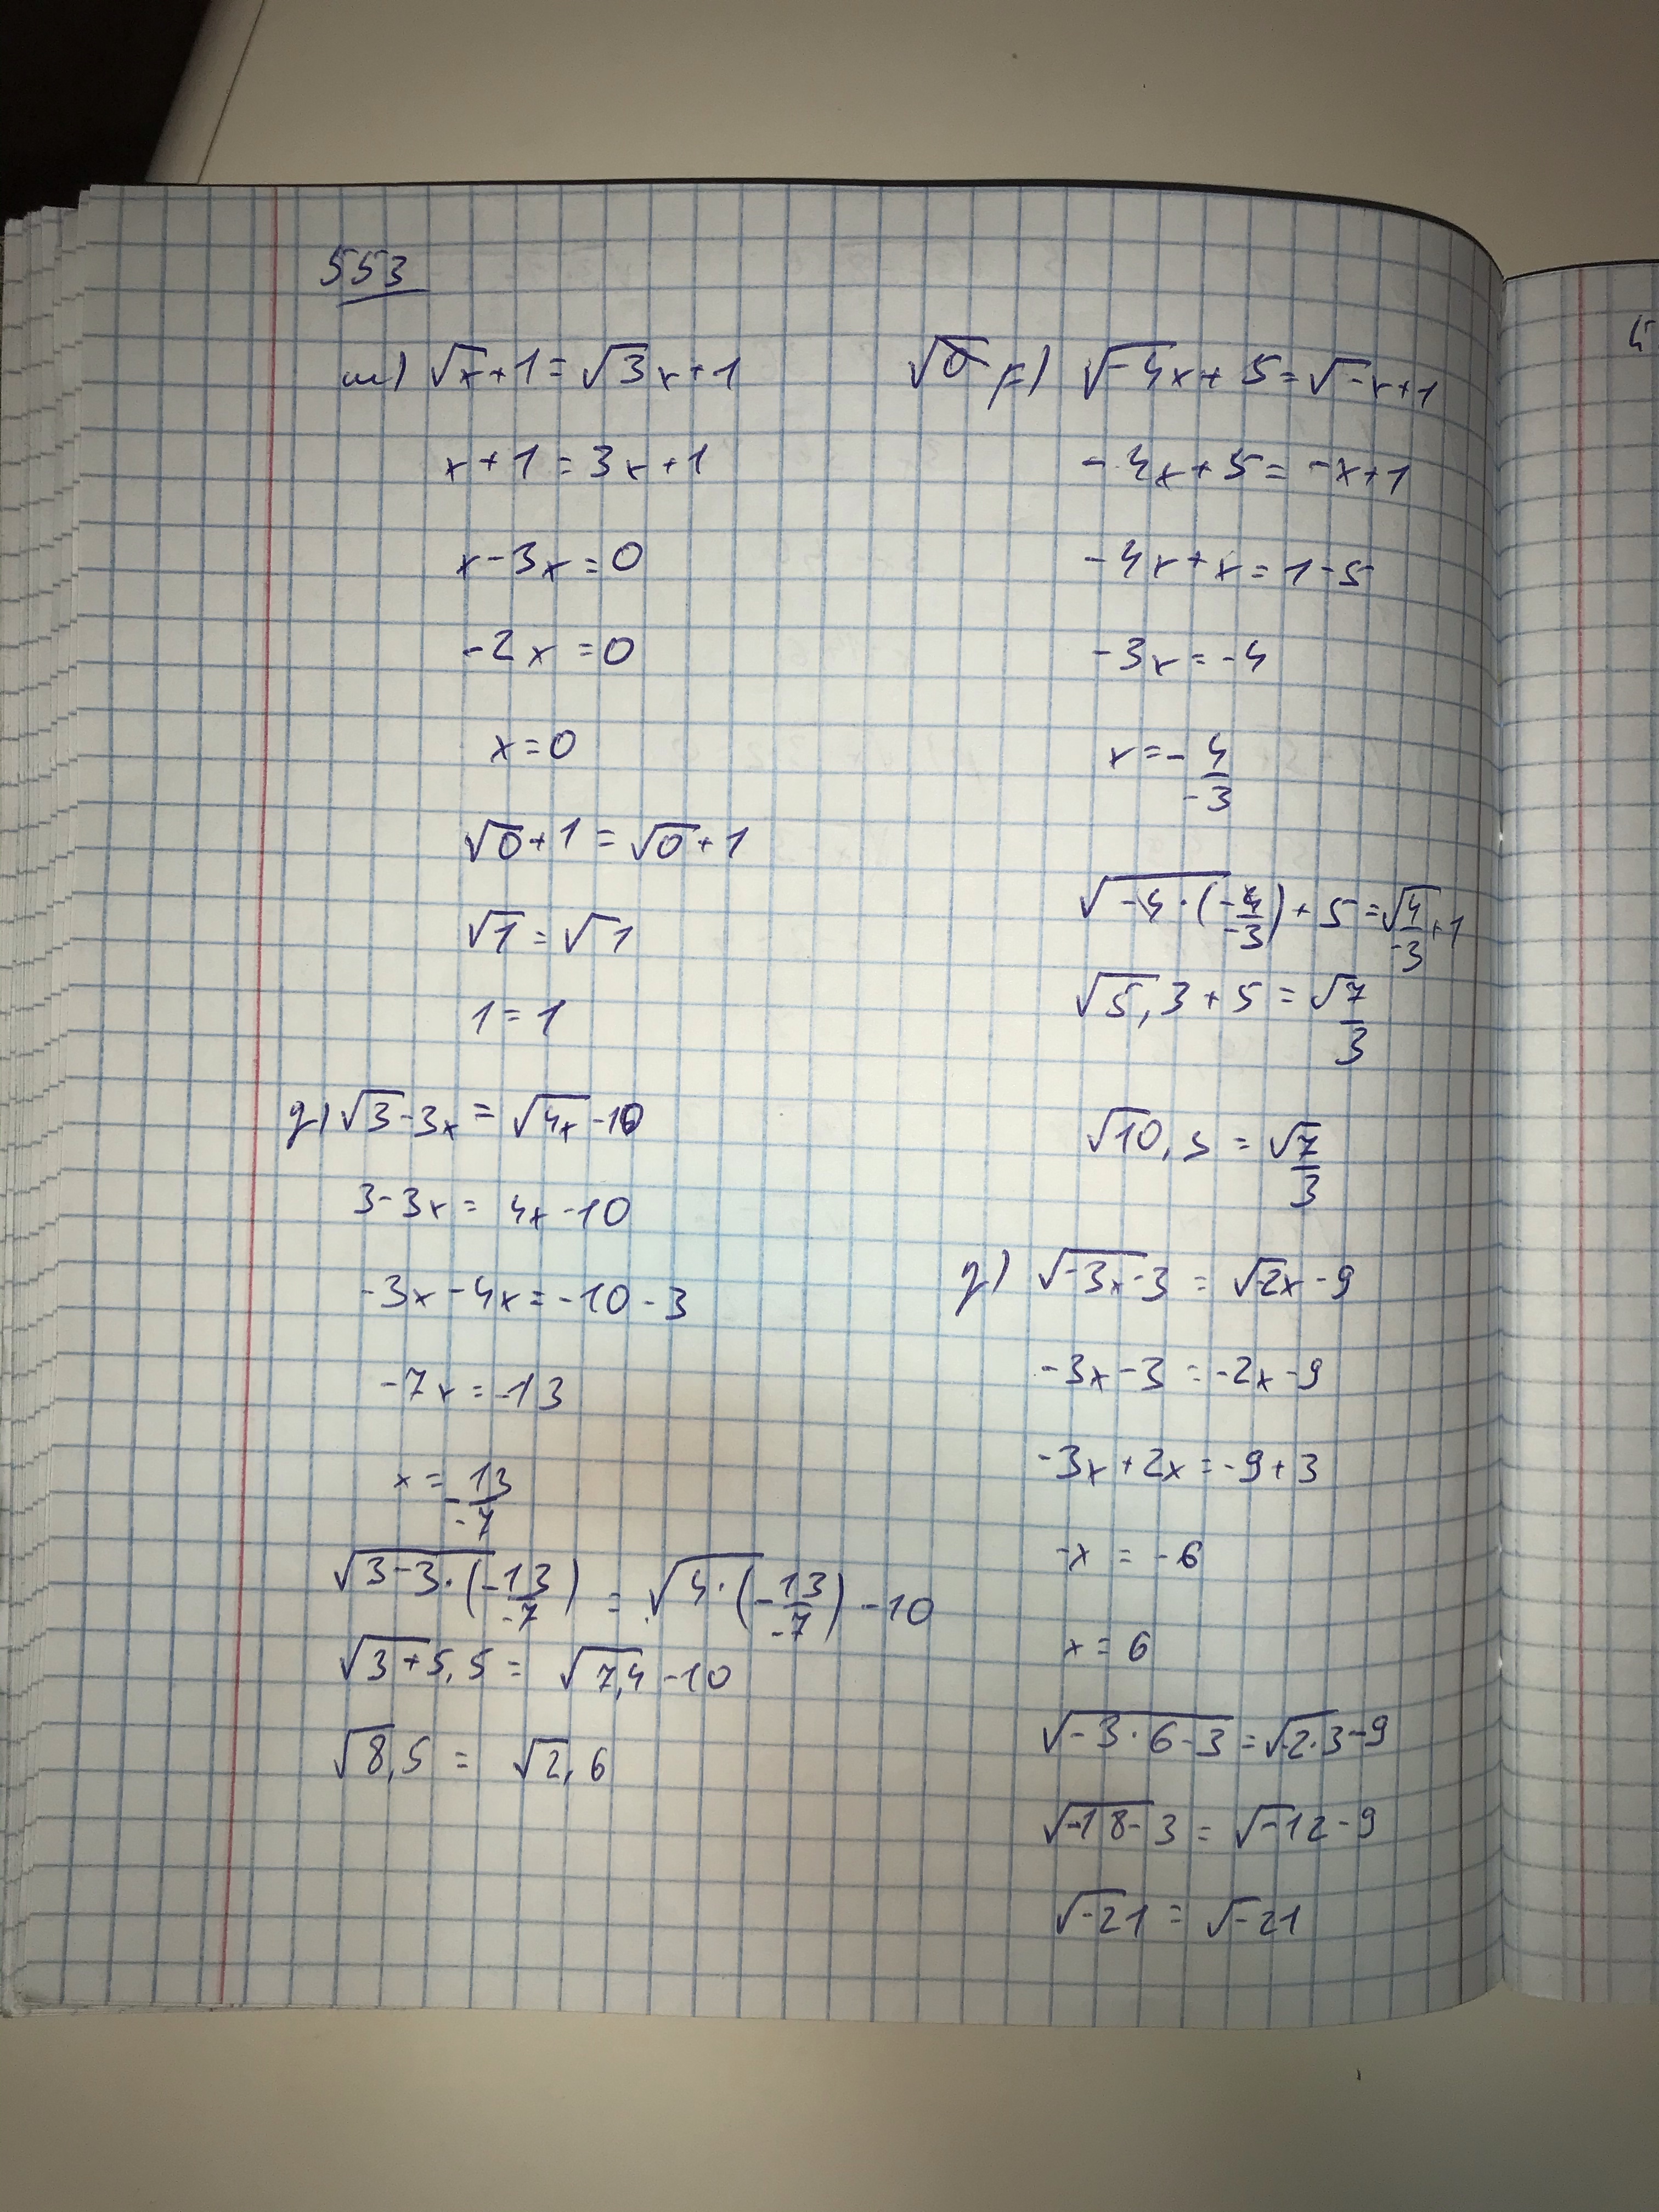 553
m) √x+1 = √3x+1
x+1 = 3x+1
x-3x = 0
-2x = 0
x = 0
√0+1 = √0+1
√1 = √1
1 = 1
g) √3-3x = √4x-10
3-3x = 4x-10
-3x-4x = -10-3
-7x = -13
x = -13/-7
√3-3·(-13/-7) = √4·(-13/-7)-10
√3+5,5 = √7,4-10
√8,5 = √2,6
√-4x+5 = √-x+1
-4x+5 = -x+1
-4x+x = 1-5
-3x = -4
x = -4/-3
√-4·(-4/-3)+5 = √4/-3+1
√5,3+5 = √7/3
√10,3 = √7/3
g) √-3x-3 = √-2x-9
-3x-3 = -2x-9
-3x+2x = -9+3
-x = -6
x = 6
√-3·6-3 = √-2·3-9
√-18-3 = √-12-9
√-21 = √-21